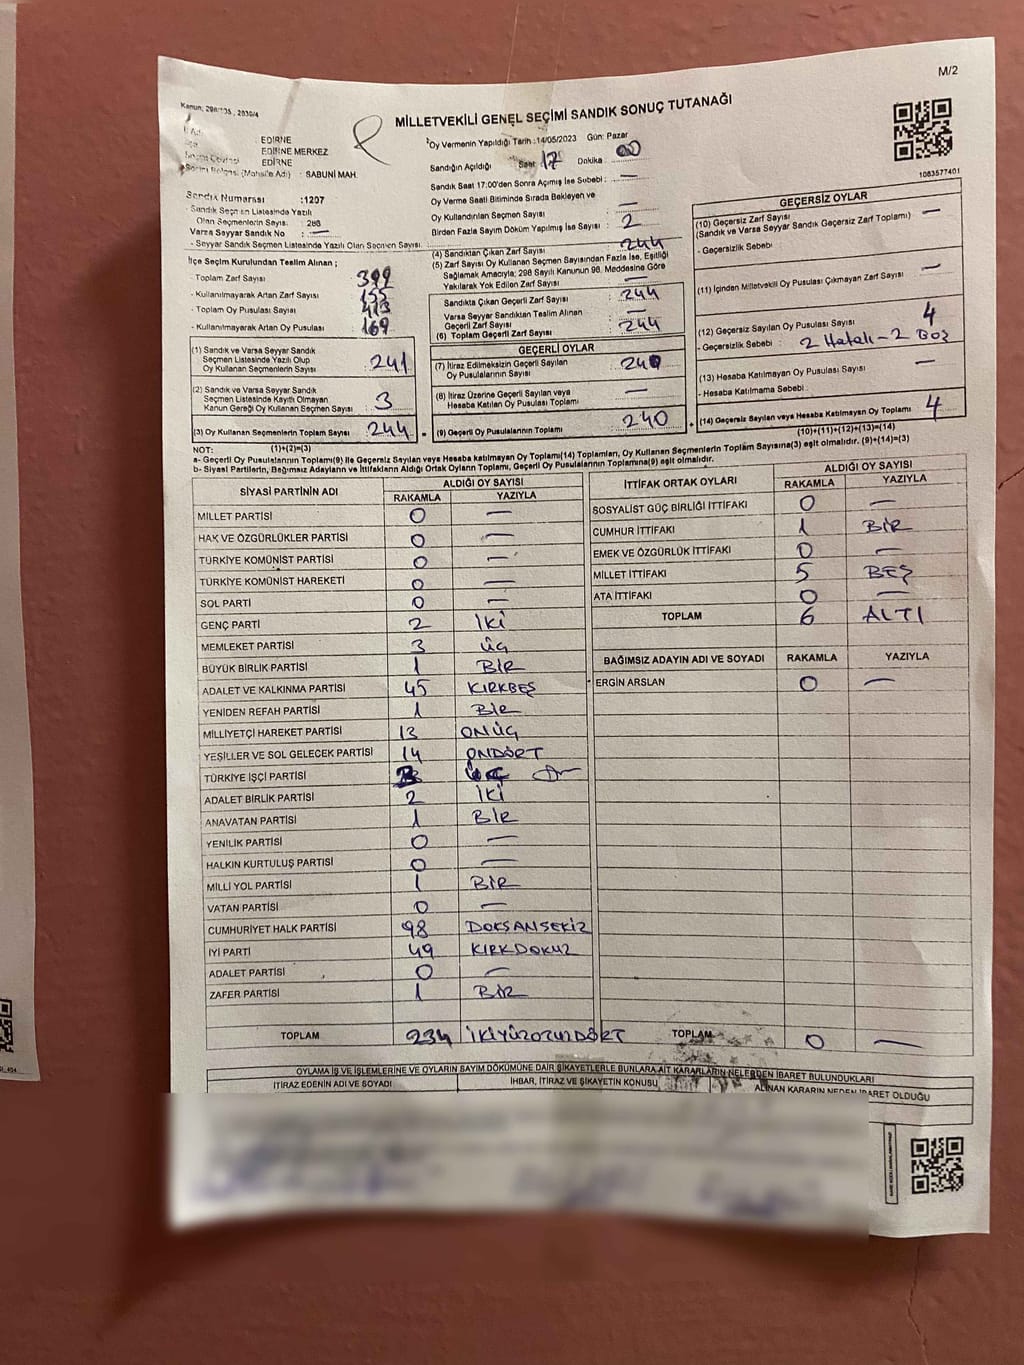 M/2
Kanun: 298/105, 2839/4
MİLLETVEKİLİ GENEL SEÇİMİ SANDIK SONUÇ TUTANAĞI
EDİRNE
EDİRNE MERKEZ
EDİRNE
(Mahalle Adı) : SABUNİ MAH.
Sandık Numarası :1207
- Sandık Seçmen Listesinde Yazılı
Olan Seçmenlerin Sayısı: 286
Varsa Seyyar Sandık No : —
- Seyyar Sandık Seçmen Listesinde Yazılı Olan Seçmen Sayısı.
Oy Vermenin Yapıldığı Tarih :14/05/2023 Gün: Pazar
Sandığın Açıldığı Saat 17 Dakika : 00
Sandık Saat 17:00'den Sonra Açımış İse Sebebi : —
Oy Verme Saati Bitiminde Sırada Bekleyen ve
Oy Kullandırılan Seçmen Sayısı —
Birden Fazla Sayım Döküm Yapılmış İse Sayısı : 2
1083577401
İlçe Seçim Kurulundan Teslim Alınan ;
- Toplam Zarf Sayısı 399
- Kullanılmayarak Artan Zarf Sayısı 155
- Toplam Oy Pusulası Sayısı 413
- Kullanılmayarak Artan Oy Pusulası 169
(1) Sandık ve Varsa Seyyar Sandık
Seçmen Listesinde Yazılı Olup
Oy Kullanan Seçmenlerin Sayısı : 241
(2) Sandık ve Varsa Seyyar Sandık
Seçmen Listesinde Kayıtlı Olmayan
Kanun Gereği Oy Kullanan Seçmen Sayısı : 3
(3) Oy Kullanan Seçmenlerin Toplam Sayısı : 244
(1)+(2)=(3)
(4) Sandıktan Çıkan Zarf Sayısı 244
(5) Zarf Sayısı Oy Kullanan Seçmen Sayısından Fazla İse, Eşitliği
Sağlamak Amacıyla; 298 Sayılı Kanunun 98. Maddesine Göre
Yakılarak Yok Edilen Zarf Sayısı : —
Sandıkta Çıkan Geçerli Zarf Sayısı : 244
Varsa Seyyar Sandıktan Teslim Alınan
Geçerli Zarf Sayısı : —
(6) Toplam Geçerli Zarf Sayısı : 244
GEÇERLİ OYLAR
(7) İtiraz Edilmeksizin Geçerli Sayılan
Oy Pusulalarının Sayısı : 240
(8) İtiraz Üzerine Geçerli Sayılan veya
Hesaba Katılan Oy Pusulası Toplamı : —
(9) Geçerli Oy Pusulalarının Toplamı : 240
GEÇERSİZ OYLAR
(10) Geçersiz Zarf Sayısı
(Sandık ve Varsa Seyyar Sandık Geçersiz Zarf Toplamı) —
- Geçersizlik Sebebi :
(11) İçinden Milletvekili Oy Pusulası Çıkmayan Zarf Sayısı : —
(12) Geçersiz Sayılan Oy Pusulası Sayısı : 4
- Geçersizlik Sebebi : 2 Hatalı - 2 Boş
(13) Hesaba Katılmayan Oy Pusulası Sayısı : —
- Hesaba Katılmama Sebebi :
(14) Geçersiz Sayılan veya Hesaba Katılmayan Oy Toplamı : 4
(10)+(11)+(12)+(13)=(14)
NOT:
a- Geçerli Oy Pusulaları Toplamı(9) ile Geçersiz Sayılan veya Hesaba katılmayan Oy Toplamı(14) Toplamları, Oy Kullanan Seçmenlerin Toplam Sayısına(3) eşit olmalıdır. (9)+(14)=(3)
b- Siyasi Partilerin, Bağımsız Adayların ve İttifakların Aldığı Ortak Oyların Toplamı, Geçerli Oy Pusulalarının Toplamına(9) eşit olmalıdır.
SİYASİ PARTİNİN ADI ALDIĞI OY SAYISI
RAKAMLA YAZIYLA
MİLLET PARTİSİ 0 —
HAK VE ÖZGÜRLÜKLER PARTİSİ 0 —
TÜRKİYE KOMÜNİST PARTİSİ 0 —
TÜRKİYE KOMÜNİST HAREKETİ 0 —
SOL PARTİ 0 —
GENÇ PARTİ 2 İKİ
MEMLEKET PARTİSİ 3 ÜÇ
BÜYÜK BİRLİK PARTİSİ 1 BİR
ADALET VE KALKINMA PARTİSİ 45 KIRKBEŞ
YENİDEN REFAH PARTİSİ 1 BİR
MİLLİYETÇİ HAREKET PARTİSİ 13 ONÜÇ
YEŞİLLER VE SOL GELECEK PARTİSİ 14 ONDÖRT
TÜRKİYE İŞÇİ PARTİSİ
ADALET BİRLİK PARTİSİ 2 İKİ
ANAVATAN PARTİSİ 1 BİR
YENİLİK PARTİSİ 0 —
HALKIN KURTULUŞ PARTİSİ 0 —
MİLLİ YOL PARTİSİ 1 BİR
VATAN PARTİSİ 0 —
CUMHURİYET HALK PARTİSİ 98 DOKSANSEKİZ
İYİ PARTİ 49 KIRKDOKUZ
ADALET PARTİSİ 0 —
ZAFER PARTİSİ 1 BİR
TOPLAM 234 İKİYÜZOTUZDÖRT
İTTİFAK ORTAK OYLARI ALDIĞI OY SAYISI
RAKAMLA YAZIYLA
SOSYALİST GÜÇ BİRLİĞİ İTTİFAKI 0 —
CUMHUR İTTİFAKI 1 BİR
EMEK VE ÖZGÜRLÜK İTTİFAKI 0 —
MİLLET İTTİFAKI 5 BEŞ
ATA İTTİFAKI 0 —
TOPLAM 6 ALTI
BAĞIMSIZ ADAYIN ADI VE SOYADI RAKAMLA YAZIYLA
ERGİN ARSLAN 0 —
TOPLAM 0 —
OYLAMA İŞ VE İŞLEMLERİNE VE OYLARIN SAYIM DÖKÜMÜNE DAİR ŞİKAYETLERLE BUNLARA AİT KARARLARIN NELERDEN İBARET BULUNDUKLARI
İTİRAZ EDENİN ADI VE SOYADI İHBAR, İTİRAZ VE ŞİKAYETİN KONUSU ALINAN KARARIN NEDEN İBARET OLDUĞU